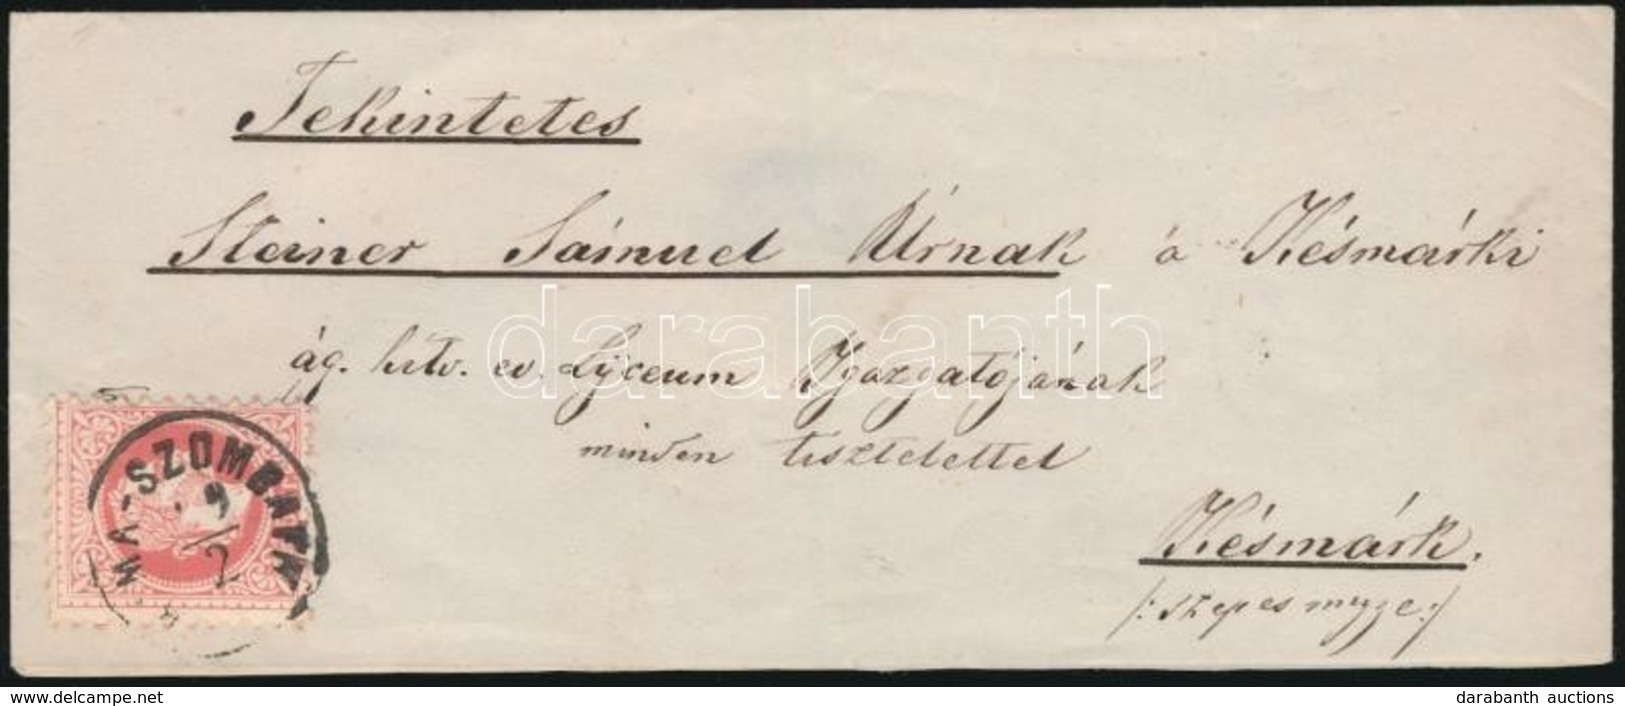 Tekintetes
Steiner Sámuel Úrnak á Késmárki
ág. hitv. ev. Lýceum Igazgatójának
minden tisztelettel
Késmárk.
/: Szepes megye :/
MA-SZOMBATH
9
2
darabanth
www.delcampe.net
darabanth auctions